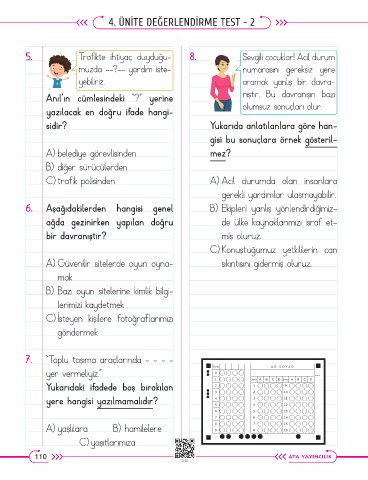 4. ÜNİTE DEĞERLENDİRME TEST - 2
5.
Trafikte ihtiyaç duyduğu-
muzda --?-- yardım iste-
yebiliriz.
Anıl'ın cümlesindeki "?" yerine
yazılacak en doğru ifade hangi-
sidir?
A) belediye görevlisinden
B) diğer sürücülerden
C) trafik polisinden
6. Aşağıdakilerden hangisi genel
ağda gezinirken yapılan doğru
bir davranıştır?
A) Güvenilir sitelerde oyun oyna-
mak
B) Bazı oyun sitelerine kimlik bilgi-
lerimizi kaydetmek
C) İsteyen kişilere fotoğraflarımızı
göndermek
7. "Toplu taşıma araçlarında - - - -
yer vermeliyiz."
Yukarıdaki ifadede boş bırakılan
yere hangisi yazılmamalıdır?
A) yaşlılara B) hamilelere
C) yaşıtlarımıza
110
8.
Sevgili çocuklar! Acil durum
numarasını gereksiz yere
aramak yanlış bir davra-
nıştır. Bu davranışın bazı
olumsuz sonuçları olur.
Yukarıda anlatılanlara göre han-
gisi bu sonuçlara örnek gösteril-
mez?
A) Acil durumda olan insanlara
gerekli yardımlar ulaşmayabilir.
B) Ekipleri yanlış yönlendirdiğimiz-
de ülke kaynaklarımızı israf et-
miş oluruz.
C) Konuştuğumuz yetkililerin can
sıkıntısını gidermiş oluruz.
AD SOYAD
ATA YAYINCILIK